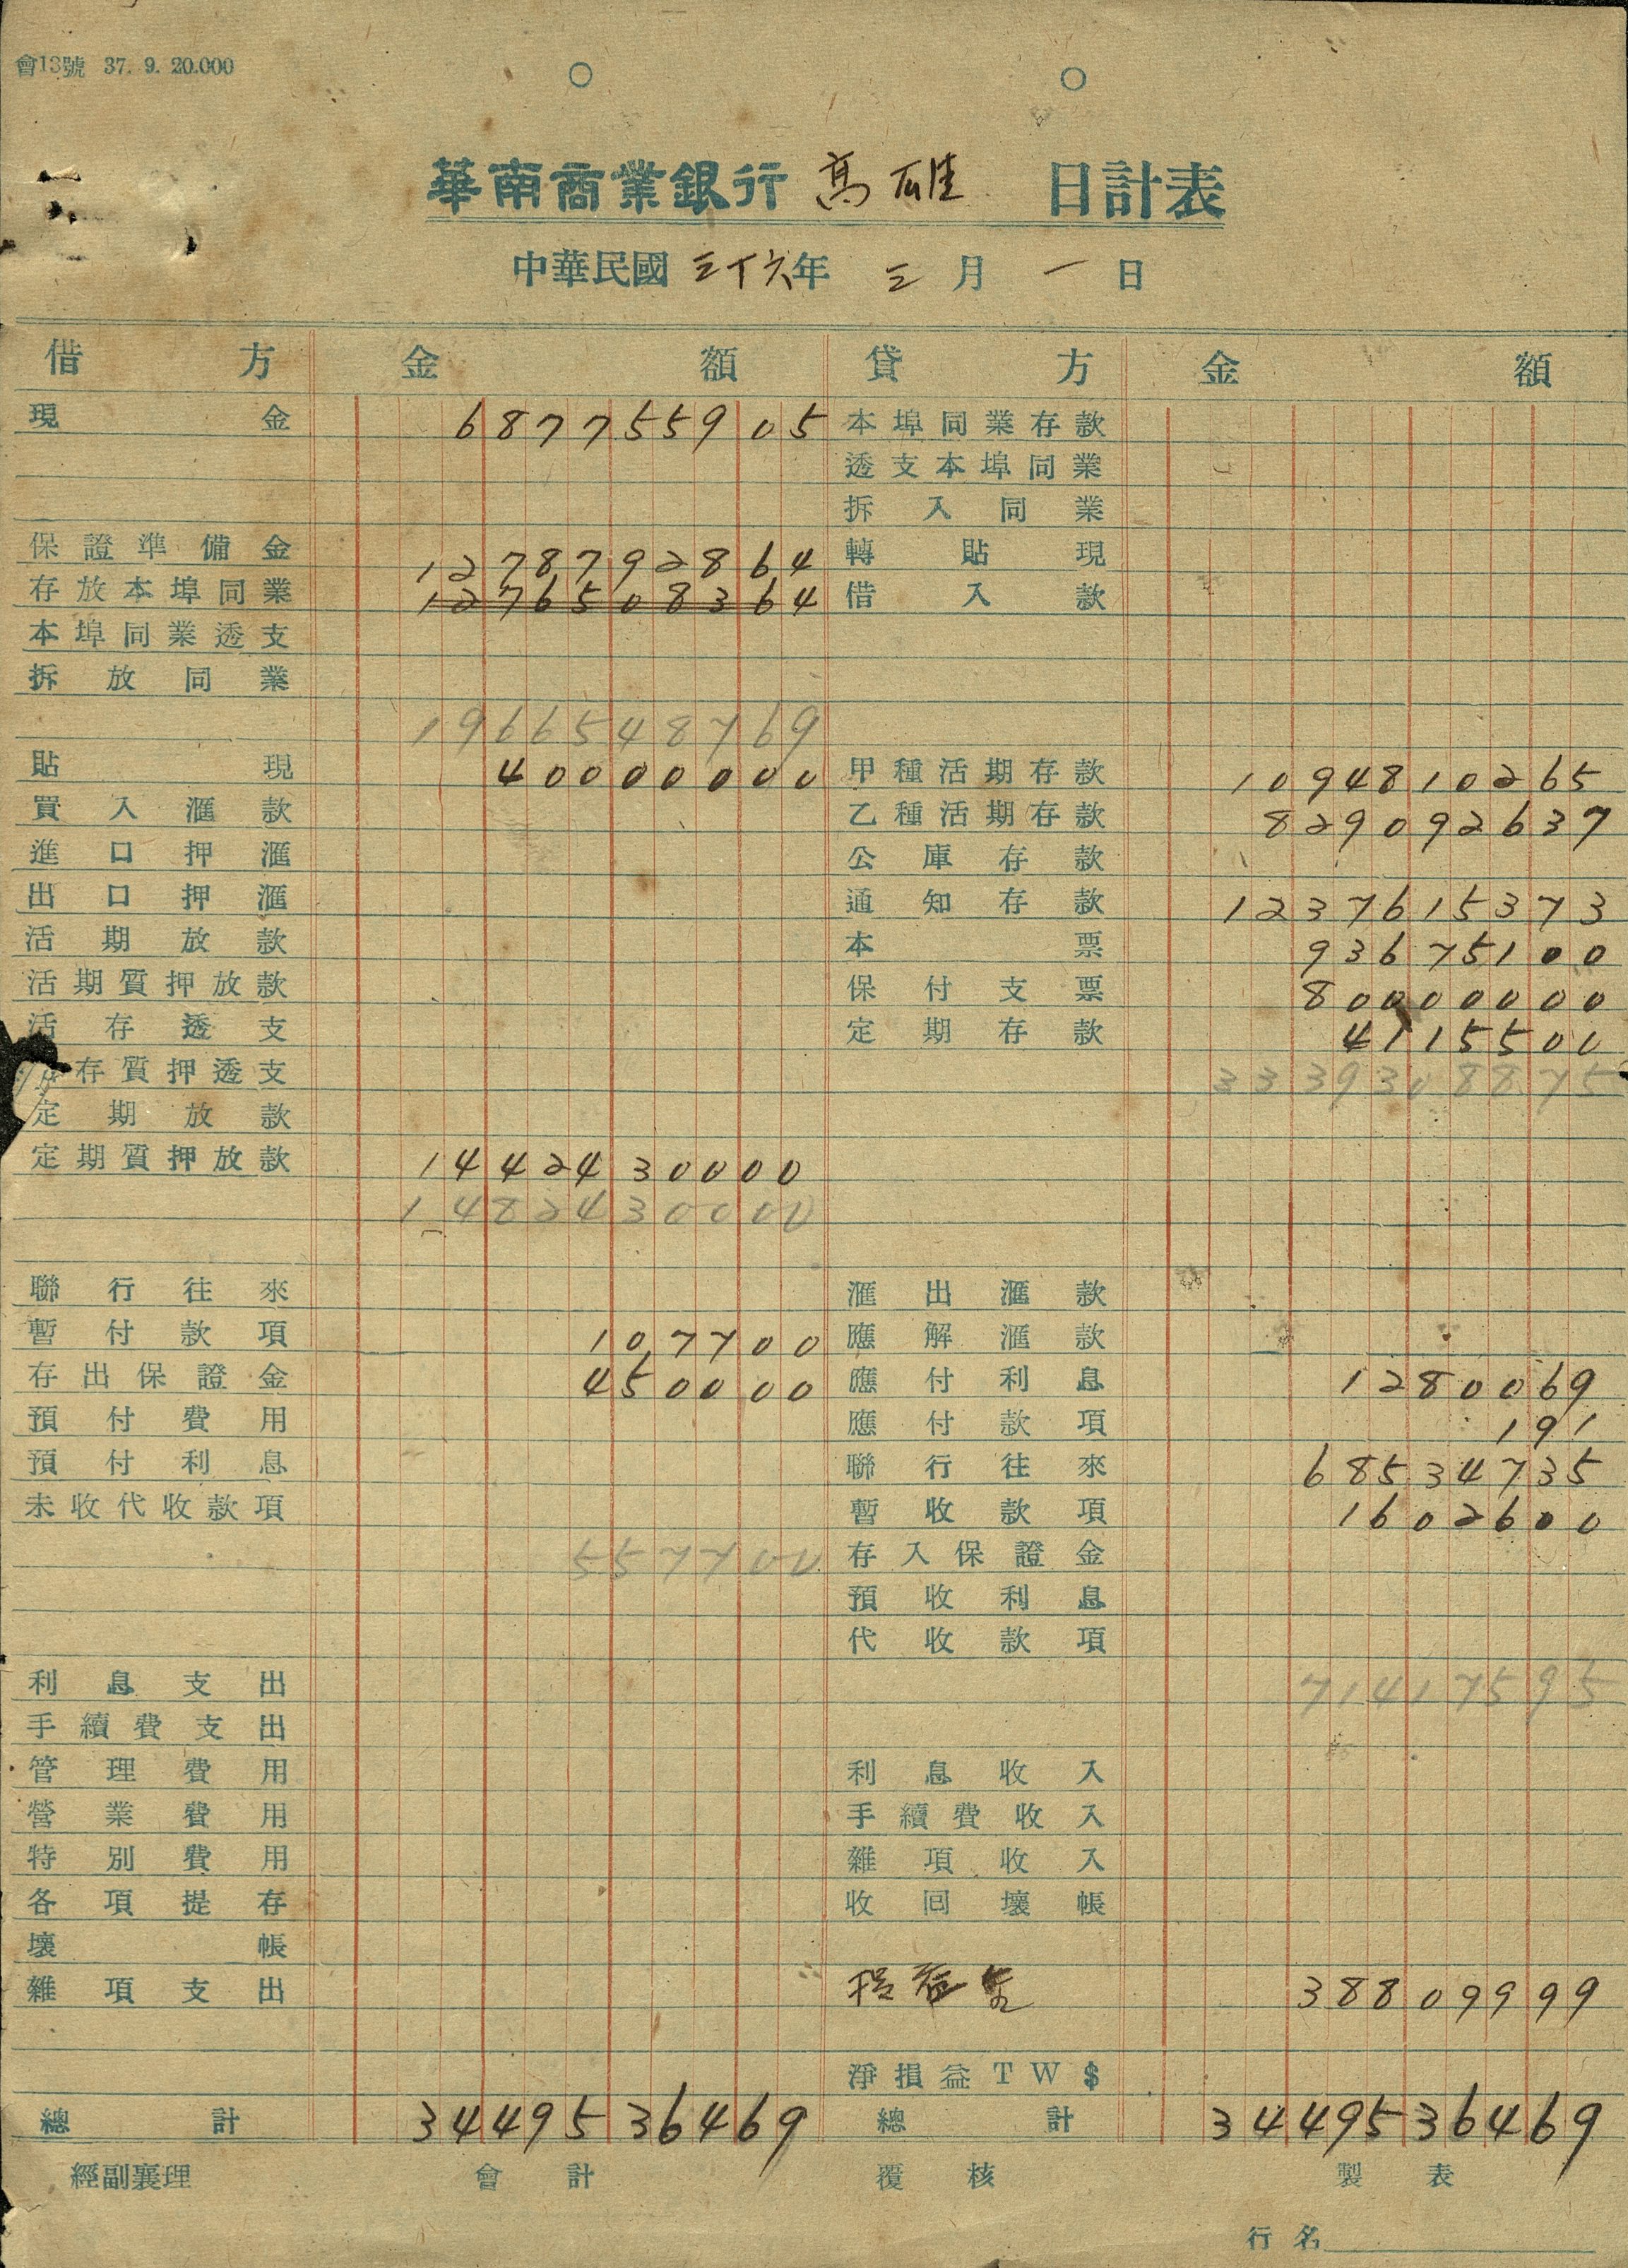 會13號 37. 9. 20.000
華南商業銀行 高雄 日計表
中華民國 三十六年 三月 一日
借方 金額 貸方 金額
現金 687755905 本埠同業存款
透支本埠同業
拆入同業
保證準備金 轉貼現
1278792864
存放本埠同業 1276508364 借入款
本埠同業透支
拆放同業
1966548769
貼現 40000000 甲種活期存款 1094810265
買入滙款 乙種活期存款 829092637
進口押滙 公庫存款
出口押滙 通知存款 1237615373
活期放款 本票 93675100
活期質押放款 保付支票 80000000
活存透支 定期存款 4115500
存質押透支 3339308875
定期放款
定期質押放款 1442430000
1482430000
聯行往來 滙出滙款
暫付款項 107700 應解滙款
存出保證金 450000 應付利息 1280069
預付費用 應付款項 191
預付利息 聯行往來 68534735
未收代收款項 暫收款項 1602600
557700 存入保證金
預收利息
代收款項
利息支出 71417595
手續費支出
管理費用 利息收入
營業費用 手續費收入
特別費用 雜項收入
各項提存 收回壞帳
壞帳
雜項支出 損益 38809999
淨損益TW$
總計 3449536469 總計 3449536469
經副襄理 會計 覆核 製表
行名